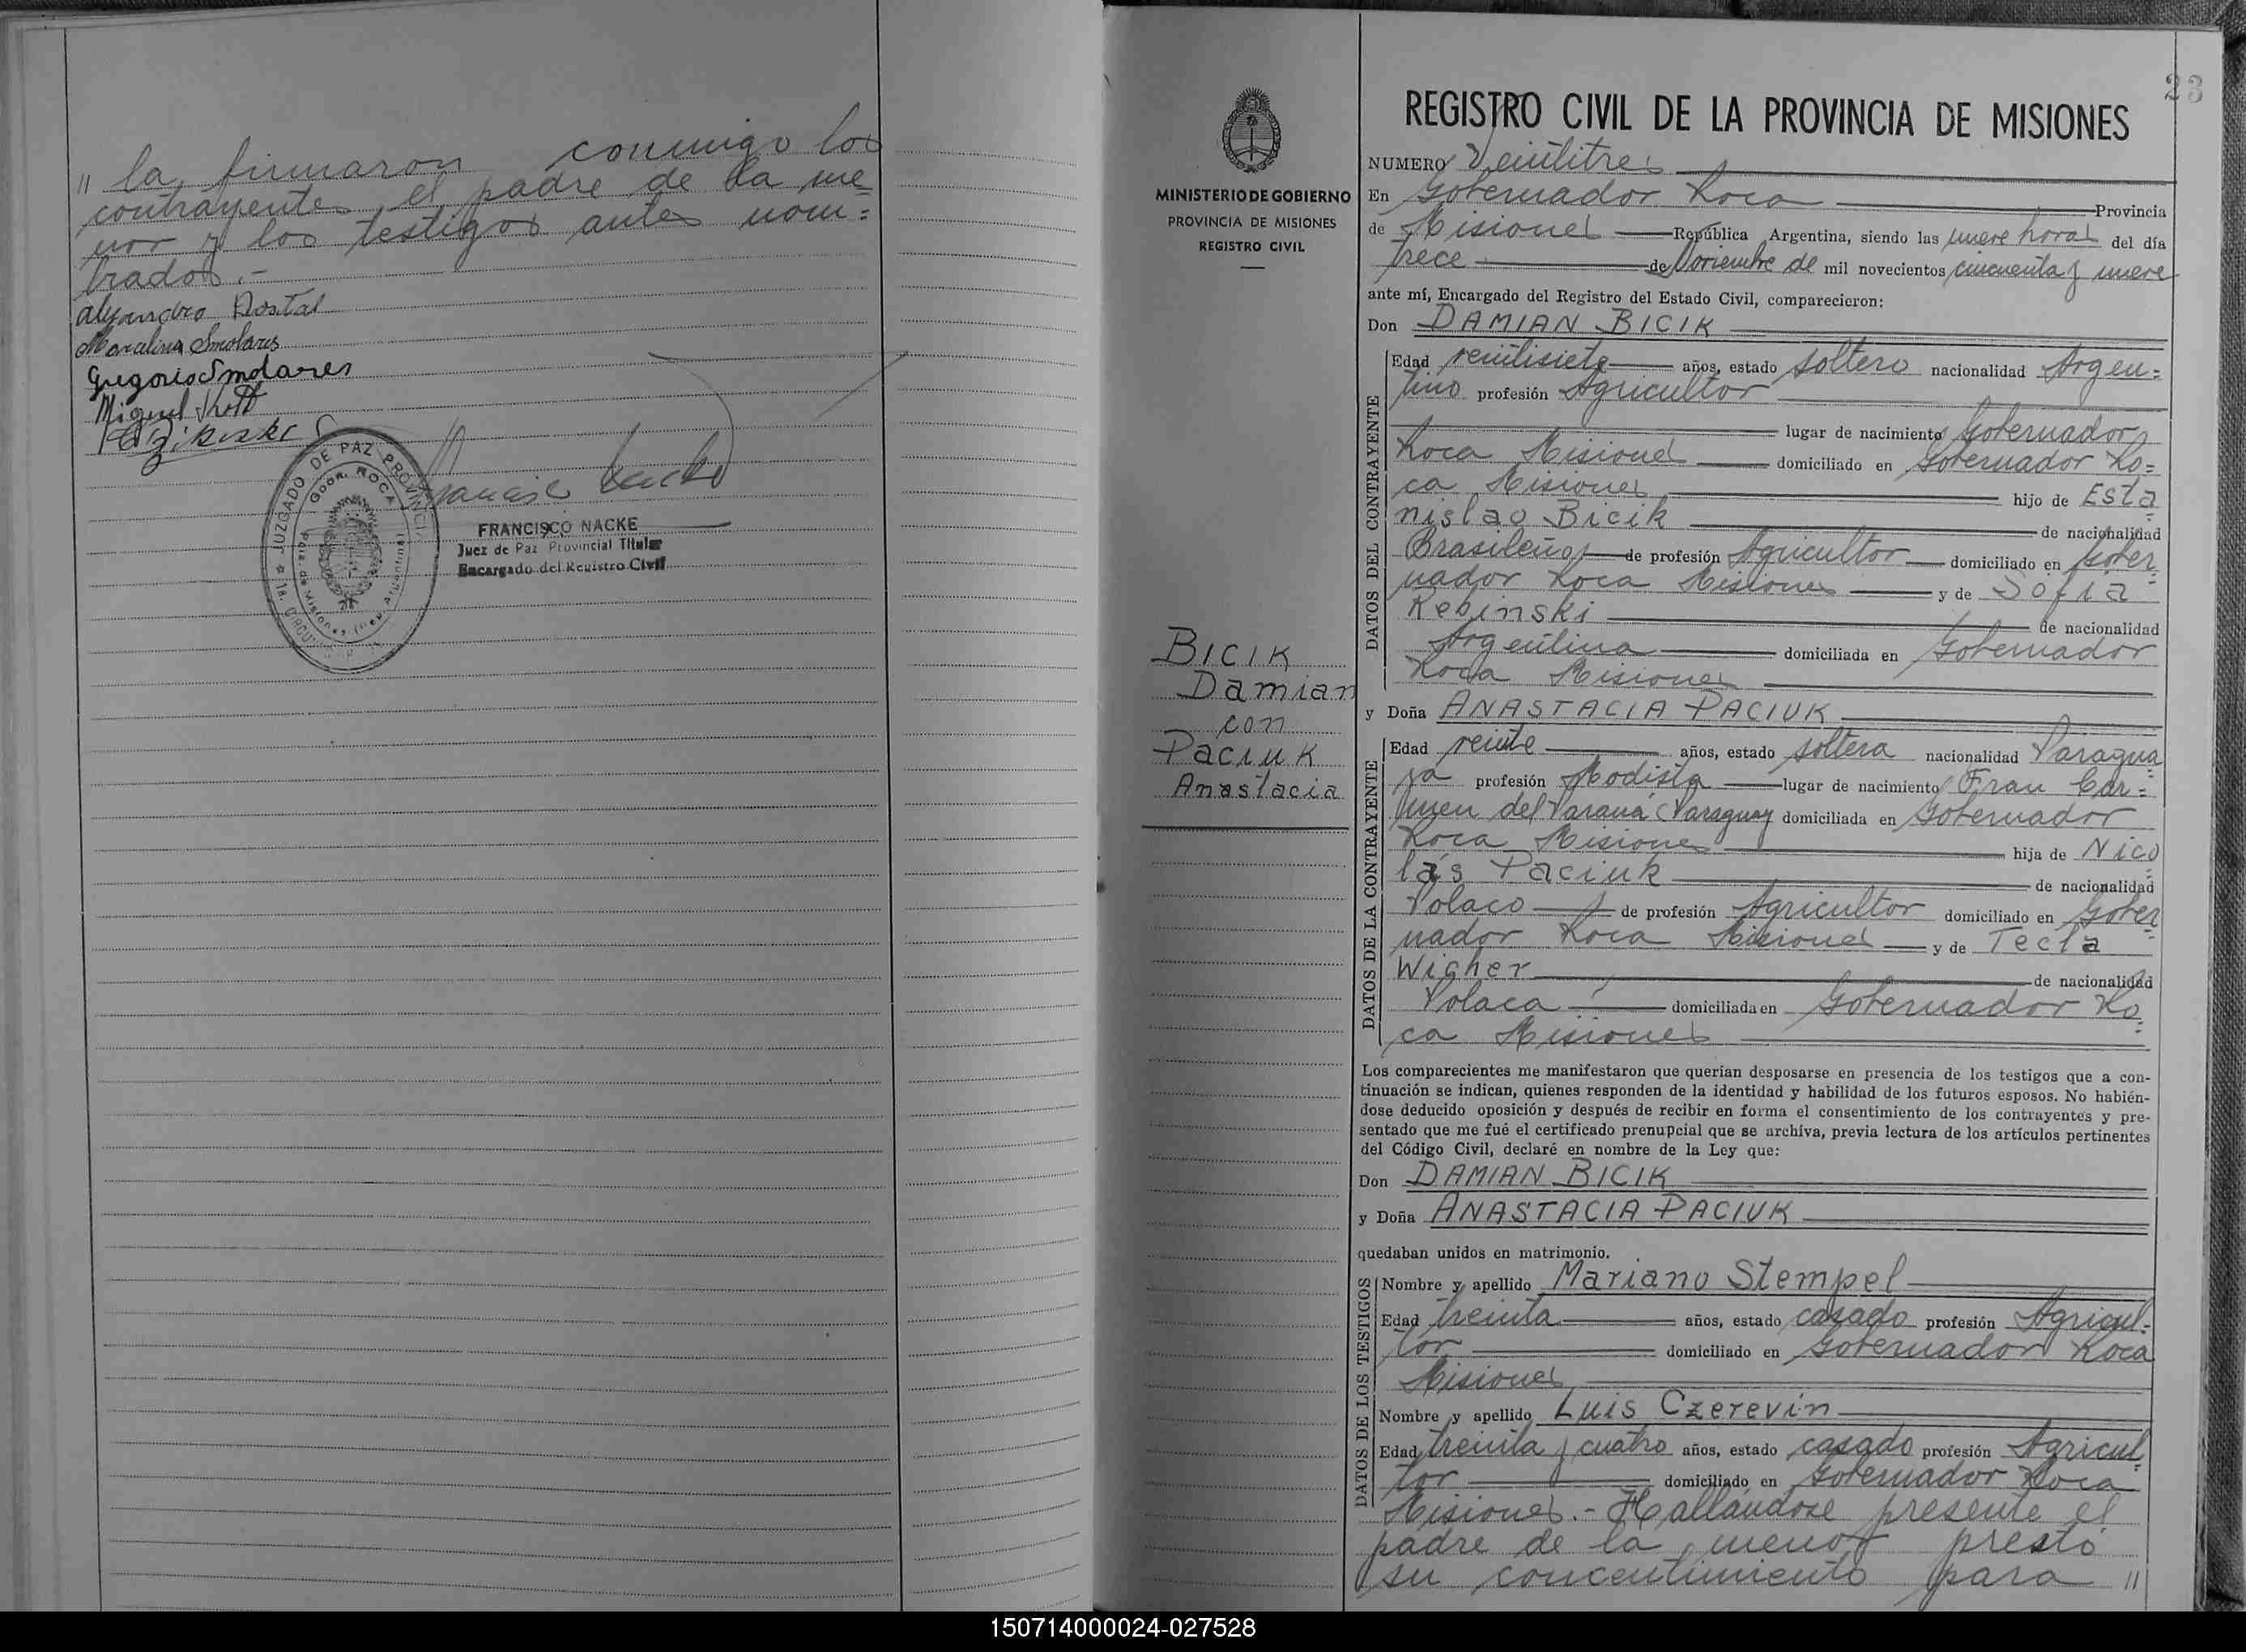 " la firmaron conmigo los
contrayentes el padre de la me=
nor y los testigos antes nom=
brados.-
Alejandro Dostal
Marcelina Smolares
Gregorio Smolares
Miguel
FRANCISCO NACKE
Juez de Paz Provincial Titular
Encargado del Registro Civil
JUZGADO DE PAZ PROVINCIAL
GDOR. ROCA
23
MINISTERIO DE GOBIERNO
PROVINCIA DE MISIONES
REGISTRO CIVIL
BICIK
Damian
con
Paciuk
Anastacia
REGISTRO CIVIL DE LA PROVINCIA DE MISIONES
NUMERO Veintitres
En Gobernador Roca Provincia
de Misiones República Argentina, siendo las nueve horas del día
trece de Noviembre de mil novecientos cincuenta y nueve
ante mí, Encargado del Registro del Estado Civil, comparecieron:
Don DAMIAN BICIK
DATOS DEL CONTRAYENTE
Edad veintisiete años, estado soltero nacionalidad Argen=
tino profesión Agricultor
lugar de nacimiento Gobernador
Roca Misiones domiciliado en Gobernador Ro=
ca Misiones hijo de Esta=
nislao Bicik de nacionalidad
Brasileño de profesión Agricultor domiciliado en Gober=
nador Roca Misiones y de Sofia
Rebinski de nacionalidad
Argentina domiciliada en Gobernador
Roca Misiones
y Doña ANASTACIA PACIUK
DATOS DE LA CONTRAYENTE
Edad veinte años, estado soltera nacionalidad Paragua=
ya profesión Modista lugar de nacimiento Fran Car=
men del Parana (Paraguay domiciliada en Gobernador
Roca Misiones hija de Nico=
lás Paciuk de nacionalidad
Polaco de profesión Agricultor domiciliado en Gober=
nador Roca Misiones y de Tecla
Wigher de nacionalidad
Polaca domiciliada en Gobernador Ro=
ca Misiones
Los comparecientes me manifestaron que querían desposarse en presencia de los testigos que a con-
tinuación se indican, quienes responden de la identidad y habilidad de los futuros esposos. No habién-
dose deducido oposición y después de recibir en forma el consentimiento de los contrayentes y pre-
sentado que me fué el certificado prenupcial que se archiva, previa lectura de los artículos pertinentes
del Código Civil, declaré en nombre de la Ley que:
Don DAMIAN BICIK
y Doña ANASTACIA PACIUK
quedaban unidos en matrimonio.
DATOS DE LOS TESTIGOS
Nombre y apellido Mariano Stempel
Edad treinta años, estado casado profesión Agricul=
tor domiciliado en Gobernador Roca
Misiones
Nombre y apellido Luis Czerevin
Edad treinta y cuatro años, estado casado profesión Agricul=
tor domiciliado en Gobernador Roca
Misiones.- Hallandose presente el
padre de la menor prestó
su concentimiento para "
150714000024-027528